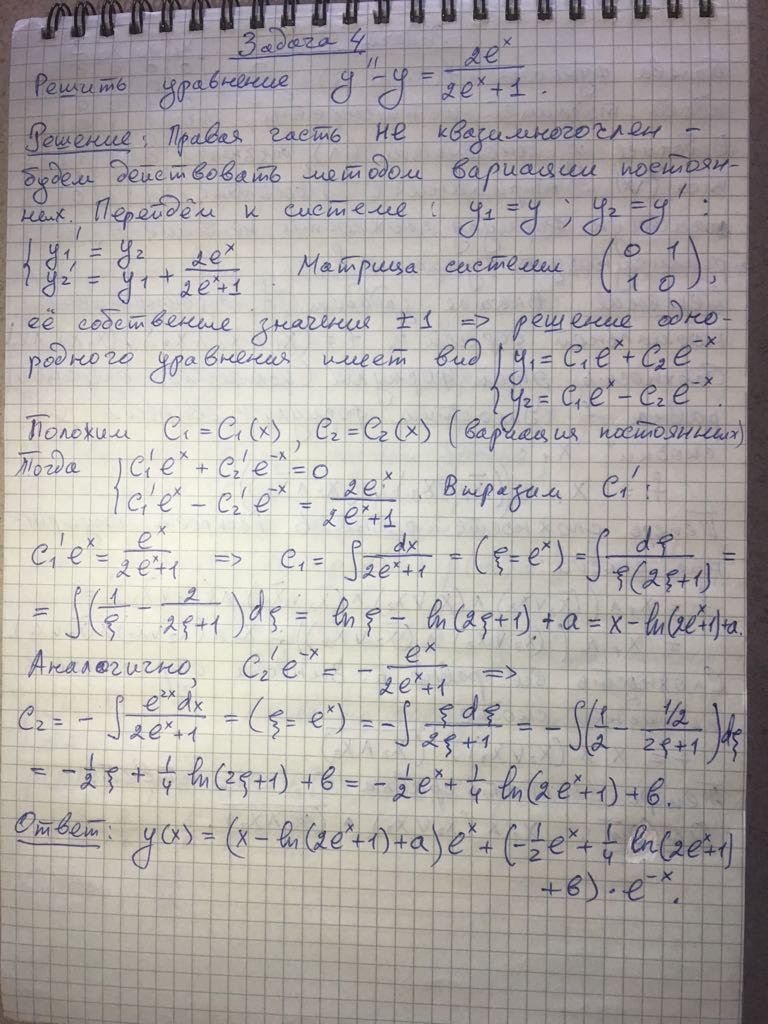 Задача 4
Решить уравнение y'' - y = 2e^x / (2e^x + 1).
Решение: Правая часть не квазимногочлен -
будем действовать методом вариации постоян-
ных. Перейдём к системе: y₁ = y; y₂ = y':
{ y₁' = y₂
{ y₂' = y₁ + 2e^x / (2e^x + 1). Матрица системы (0 1; 1 0),
её собственные значения ±1 => решение одно-
родного уравнения имеет вид { y₁ = C₁e^x + C₂e^-x
{ y₂ = C₁e^x - C₂e^-x.
Положим C₁ = C₁(x), C₂ = C₂(x) (вариация постоянных)
Тогда { C₁'e^x + C₂'e^-x = 0
{ C₁'e^x - C₂'e^-x = 2e^x / (2e^x + 1). Выразим C₁':
C₁'e^x = e^x / (2e^x + 1) => C₁ = ∫ dx / (2e^x + 1) = (ξ = e^x) = ∫ dξ / (ξ(2ξ + 1)) =
= ∫ (1/ξ - 2/(2ξ + 1)) dξ = ln ξ - ln(2ξ + 1) + a = x - ln(2e^x + 1) + a.
Аналогично, C₂'e^-x = - e^x / (2e^x + 1) =>
C₂ = - ∫ e^2x dx / (2e^x + 1) = (ξ = e^x) = - ∫ ξ dξ / (2ξ + 1) = - ∫ (1/2 - (1/2)/(2ξ + 1)) dξ
= - 1/2 ξ + 1/4 ln(2ξ + 1) + в = - 1/2 e^x + 1/4 ln(2e^x + 1) + в.
Ответ: y(x) = (x - ln(2e^x + 1) + a) e^x + (- 1/2 e^x + 1/4 ln(2e^x + 1)
+ в) · e^-x.